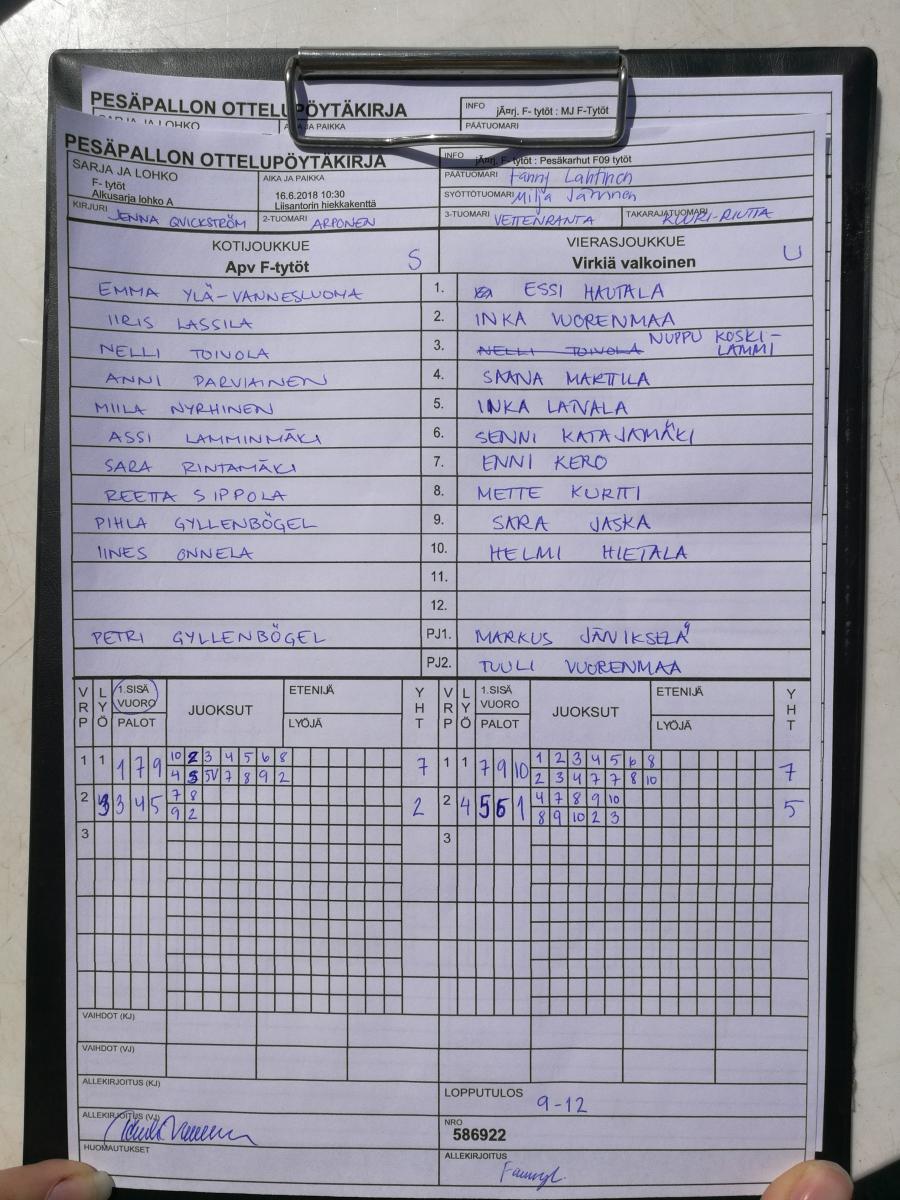 PESÄPALLON OTTELUPÖYTÄKIRJA
INFO jÃ¤rj. F- tytöt : MJ F-Tytöt
PÄÄTUOMARI
PESÄPALLON OTTELUPÖYTÄKIRJA
INFO jÃ¤rj. F- tytöt : Pesäkarhut F09 tytöt
SARJA JA LOHKO
F- tytöt
Alkusarja lohko A
AIKA JA PAIKKA
16.6.2018 10:30
Liisantorin hiekkakenttä
PÄÄTUOMARI Fanny Lahtinen
SYÖTTÖTUOMARI Milja Jaminen
KIRJURI JENNA QVICKSTRÖM
2-TUOMARI ARPONEN
3-TUOMARI VETTENRANTA
TAKARAJATUOMARI KUURI-RIUTTA
KOTIJOUKKUE S
Apv F-tytöt
VIERASJOUKKUE U
Virkiä valkoinen
EMMA YLÄ-VANNESLUOMA 1. ESSI HAUTALA
IIRIS LASSILA 2. INKA VUORENMAA
NELLI TOIVOLA 3. NELLI TOIVOLA NUPPU KOSKI-
LAMMI
ANNI PARVIAINEN 4. SAANA MARTTILA
MIILA NYRHINEN 5. INKA LATVALA
ASSI LAMMINMÄKI 6. SENNI KATAJAMÄKI
SARA RINTAMÄKI 7. ENNI KERO
REETTA SIPPOLA 8. METTE KURTTI
PIHLA GYLLENBÖGEL 9. SARA JASKA
IINES ONNELA 10. HELMI HIETALA
11.
12.
PETRI GYLLENBÖGEL PJ1. MARKUS JÄRVIKSELÄ
PJ2. TUULI VUORENMAA
VRP LYÖ 1.SISÄ VUORO PALOT JUOKSUT ETENIJÄ LYÖJÄ YHT VRP LYÖ 1.SISÄ VUORO PALOT JUOKSUT ETENIJÄ LYÖJÄ YHT
1 1 1 7 9 10 2 3 4 5 6 8 7 1 1 7 9 10 1 2 3 4 5 6 8 7
4 5 5V 7 8 9 2 2 3 4 7 7 8 10
2 3 3 4 5 7 8 2 2 4 5 6 1 4 7 8 9 10 5
9 2 8 9 10 2 3
3 3
VAIHDOT (KJ)
VAIHDOT (VJ)
ALLEKIRJOITUS (KJ)
LOPPUTULOS 9-12
ALLEKIRJOITUS (VJ)
NRO
586922
HUOMAUTUKSET
ALLEKIRJOITUS